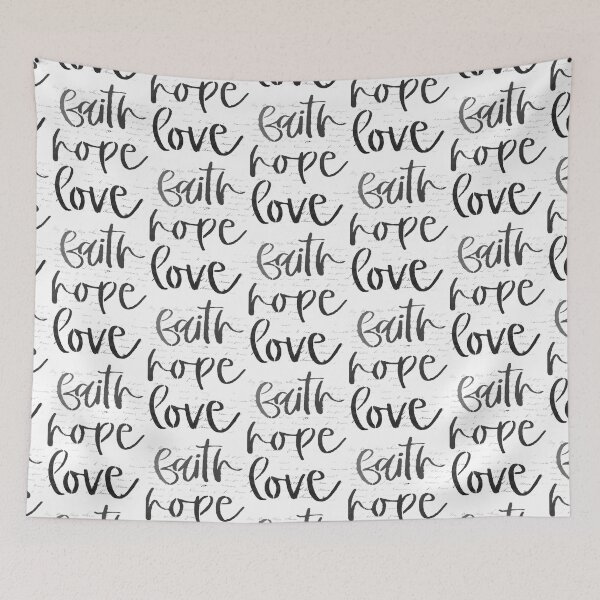 love
faith
hope
love
faith
hope
love
faith
hope
love
faith
hope
love
faith
hope
love
faith
hope
love
faith
hope
love
faith
hope
love
faith
hope
love
faith
hope
love
faith
hope
love
faith
hope
love
faith
hope
love
faith
hope
love
faith
hope
love
faith
hope
love
faith
hope
love
faith